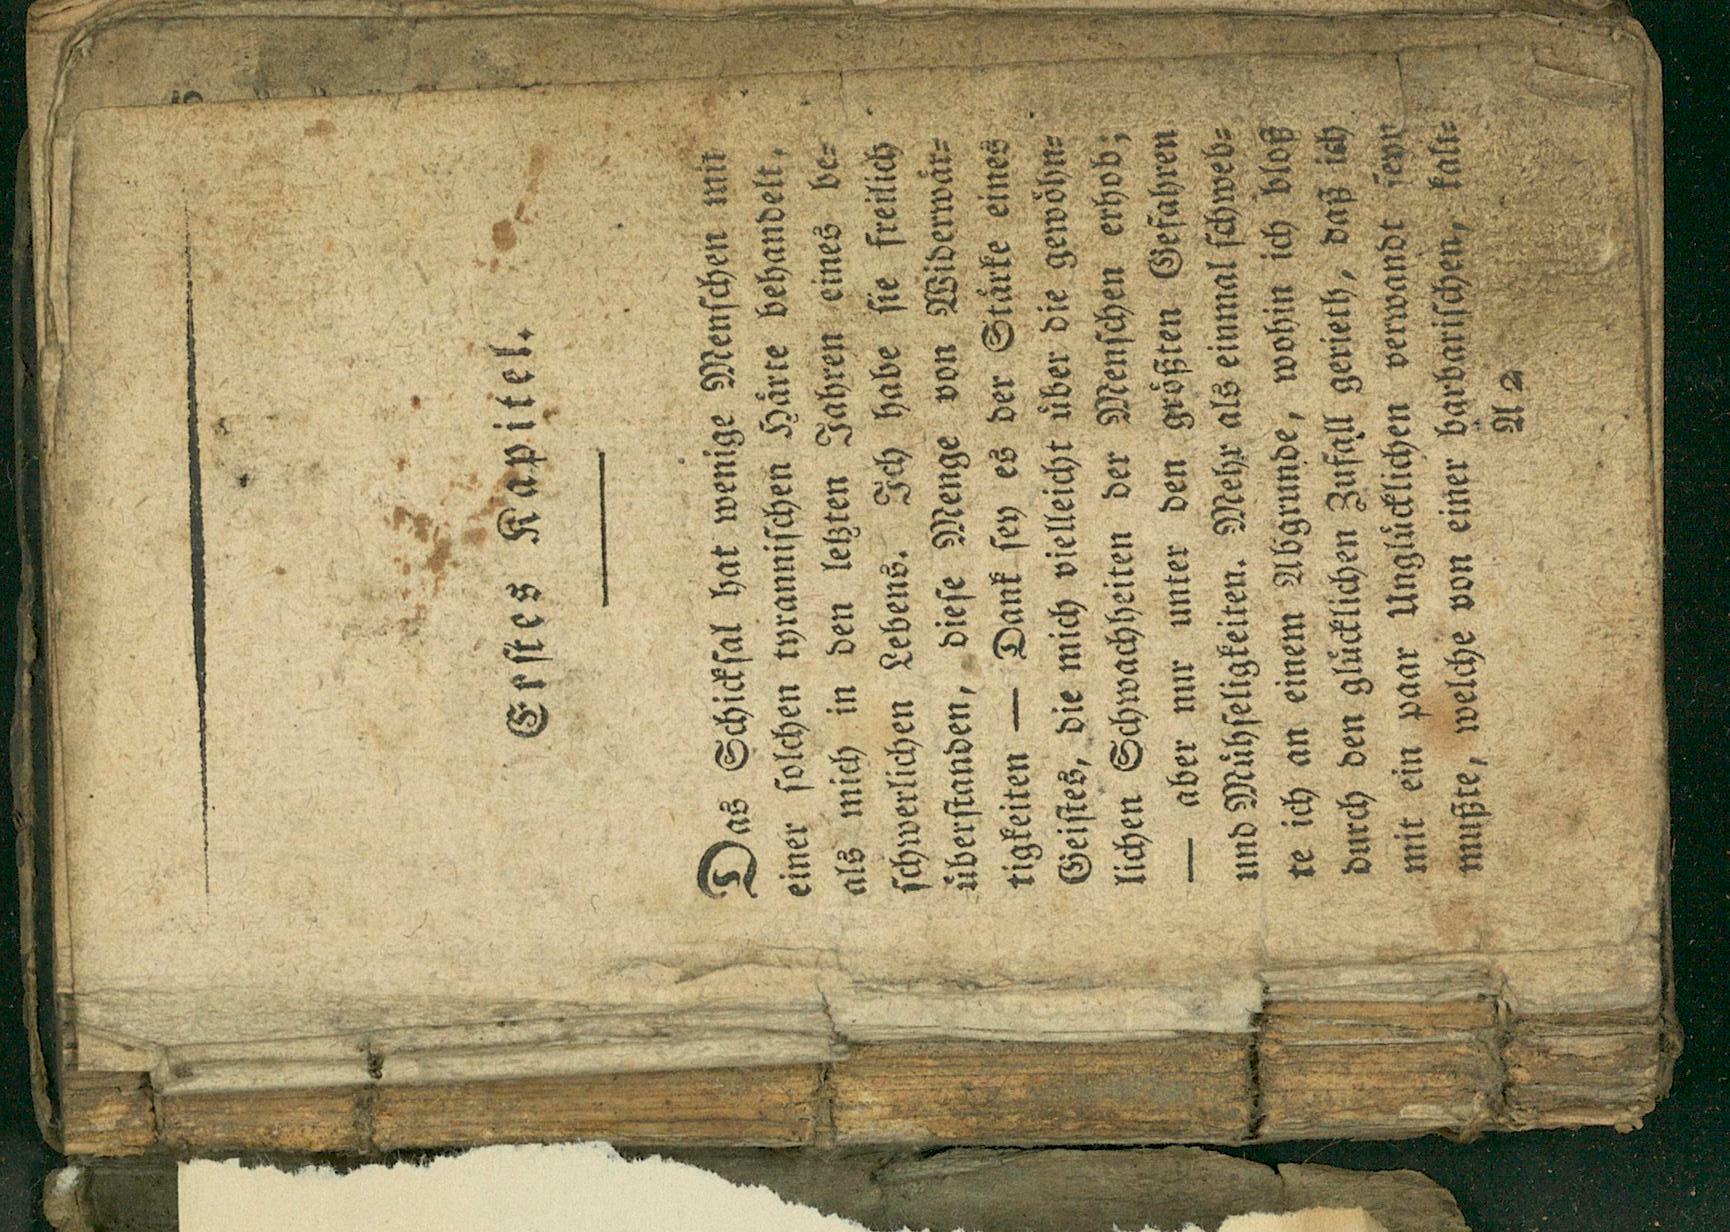 Erstes Kapitel.
Das Schicksal hat wenige Menschen mit
einer solchen tyrannischen Härte behandelt,
als mich in den letzten Jahren eines be-
schwerlichen Lebens. Ich habe sie freilich
überstanden, diese Menge von Widerwär-
tigkeiten — Dank sey es der Stärke eines
Geistes, die mich vielleicht über die gewöhn-
lichen Schwachheiten der Menschen erhob;
— aber nur unter den größten Gefahren
und Mühseligkeiten. Mehr als einmal schweb-
te ich an einem Abgrunde, wohin ich bloß
durch den glücklichen Zufall gerieth, daß ich
mit ein paar Unglücklichen verwandt seyn
mußte, welche von einer barbarischen, kalt-
A 2